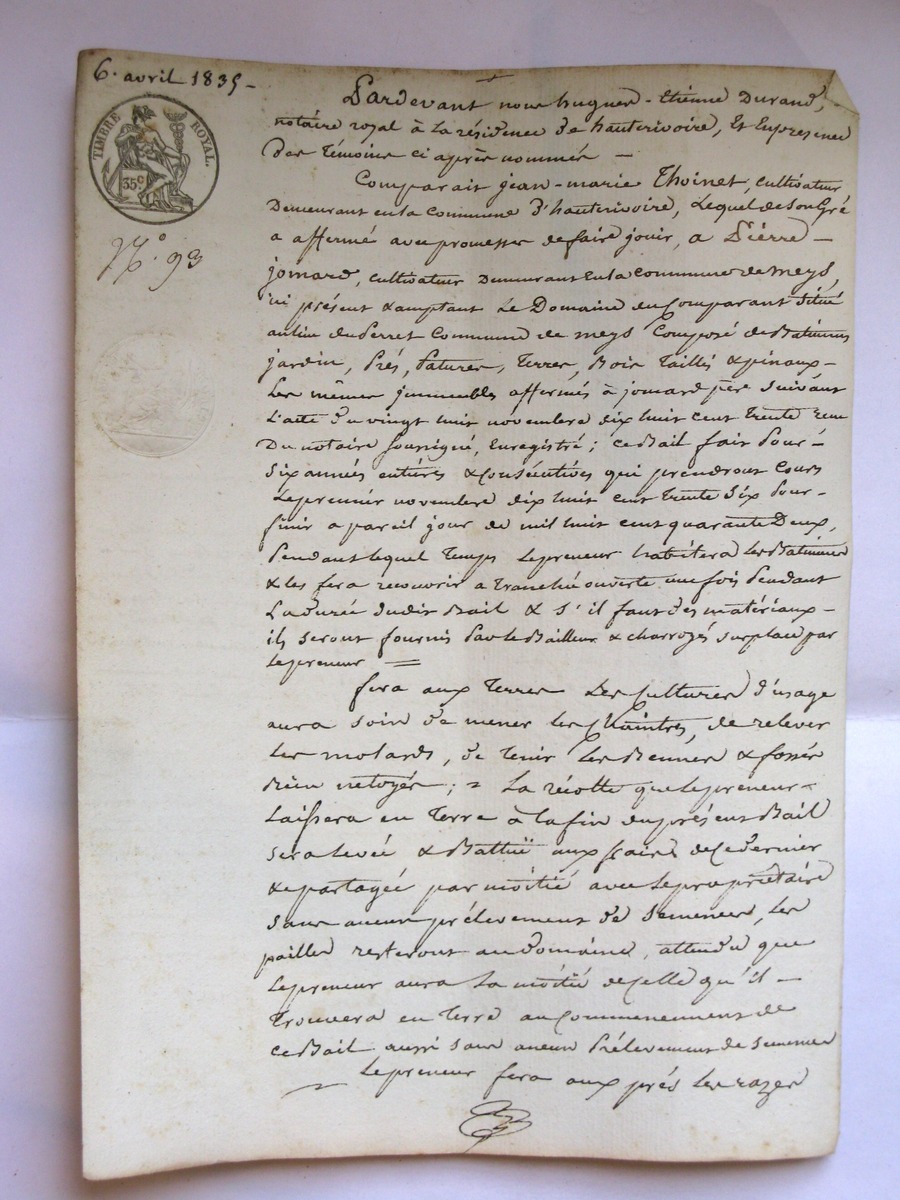 6. avril 1835 -
TIMBRE ROYAL.
35c
N.° 93
Pardevant nous hugues-Etienne Durand,
notaire royal à la résidence de hauterivoire, Et Enpresence
des Témoins ci après nommés -
Comparait jean-marie Thoinet, cultivateur
Demeurant en la commune d'hauterivoire, Lequel deson Gré
a affermé avec promesse de faire jouir, a Pierre -
jomard, cultivateur demeurant En la commune de meys,
ici présent & acceptant Le Domaine du Comparant Situé
au lieu du Perret Commune de meys Composé de Batimens
jardin, Prés, Patures, Terres, Bois Taillis & pinaux -
Les mêmes jmmeubles affermés à jomard père suivant
L'acte du vingt huit novembre dix huit cent Trente reçu
Du notaire Soussigné, Enregistré ; ce Bail fait Pour -
Six années entières & consécutives qui prendront Cours
Le premier novembre dix huit cent trente Six Pour -
finir a pareil jour de mil huit cent quarante Deux,
Pendant lequel Temps Le preneur habitera les Batimens
& les fera recouvrir a Tranchée ouverte une fois Pendant
La durée dudit Bail & s'il faut des matériaux -
ils seront fournis Par le Bailleur & charroyés sur place par
Le preneur =
fera aux Terres Les Cultures d'usage
aura soin de mener les Chaintres, de relever
Les motards, de Tenir Les Biennes & fossés
Bien netoyés ; = La récolte que Le preneur -
Laissera en Terre à la fin du présent Bail
sera levée & Battuë aux frais de ce dernier
& partagée par moitié avec Le propriétaire
sans aucun prélevement de Semences, Les
pailles resteront au domaine, attendu que
Le preneur aura La moitié de celle qu'il -
Trouvera en Terre au Commencement de
ce Bail aussi sans aucun Prélevement de semences
Le preneur fera aux prés les razes